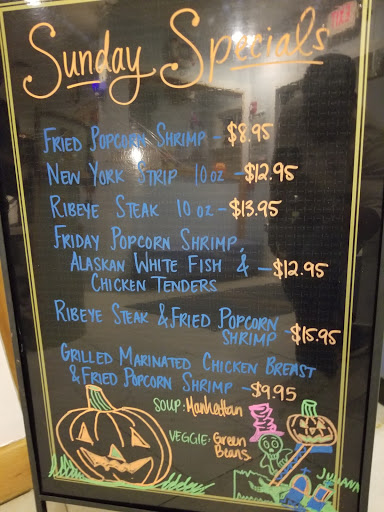 Sunday Specials
FRIED POPCORN SHRIMP - $8.95
NEW YORK STRIP 10 OZ - $12.95
RIBEYE STEAK 10 OZ - $13.95
FRIDAY POPCORN SHRIMP,
ALASKAN WHITE FISH & - $12.95
CHICKEN TENDERS
RIBEYE STEAK & FRIED POPCORN
SHRIMP - $15.95
GRILLED MARINATED CHICKEN BREAST
& FRIED POPCORN SHRIMP - $9.95
SOUP: Manhattan
VEGGIE: Green
Beans